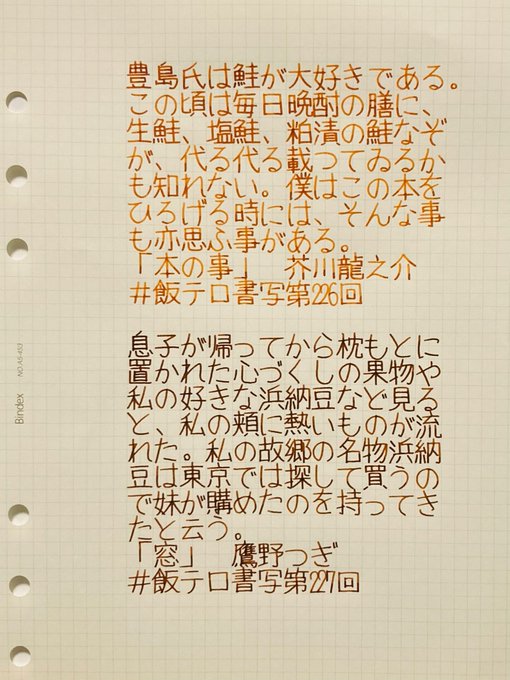 豊島氏は鮭が大好きである。
この頃は毎日晩酌の膳に、
生鮭、塩鮭、粕漬の鮭なぞ
が、代る代る載つてゐるか
も知れない。僕はこの本を
ひろげる時には、そんな事
も亦思ふ事がある。
「本の事」　芥川龍之介
#飯テロ書写第226回
息子が帰ってから枕もとに
置かれた心づくしの果物や
私の好きな浜納豆など見る
と、私の頬に熱いものが流
れた。私の故郷の名物浜納
豆は東京では探して買うの
で妹が購めたのを持ってき
たと云う。
「窓」　鷹野つぎ
#飯テロ書写第227回
Bindex NO.A5-453